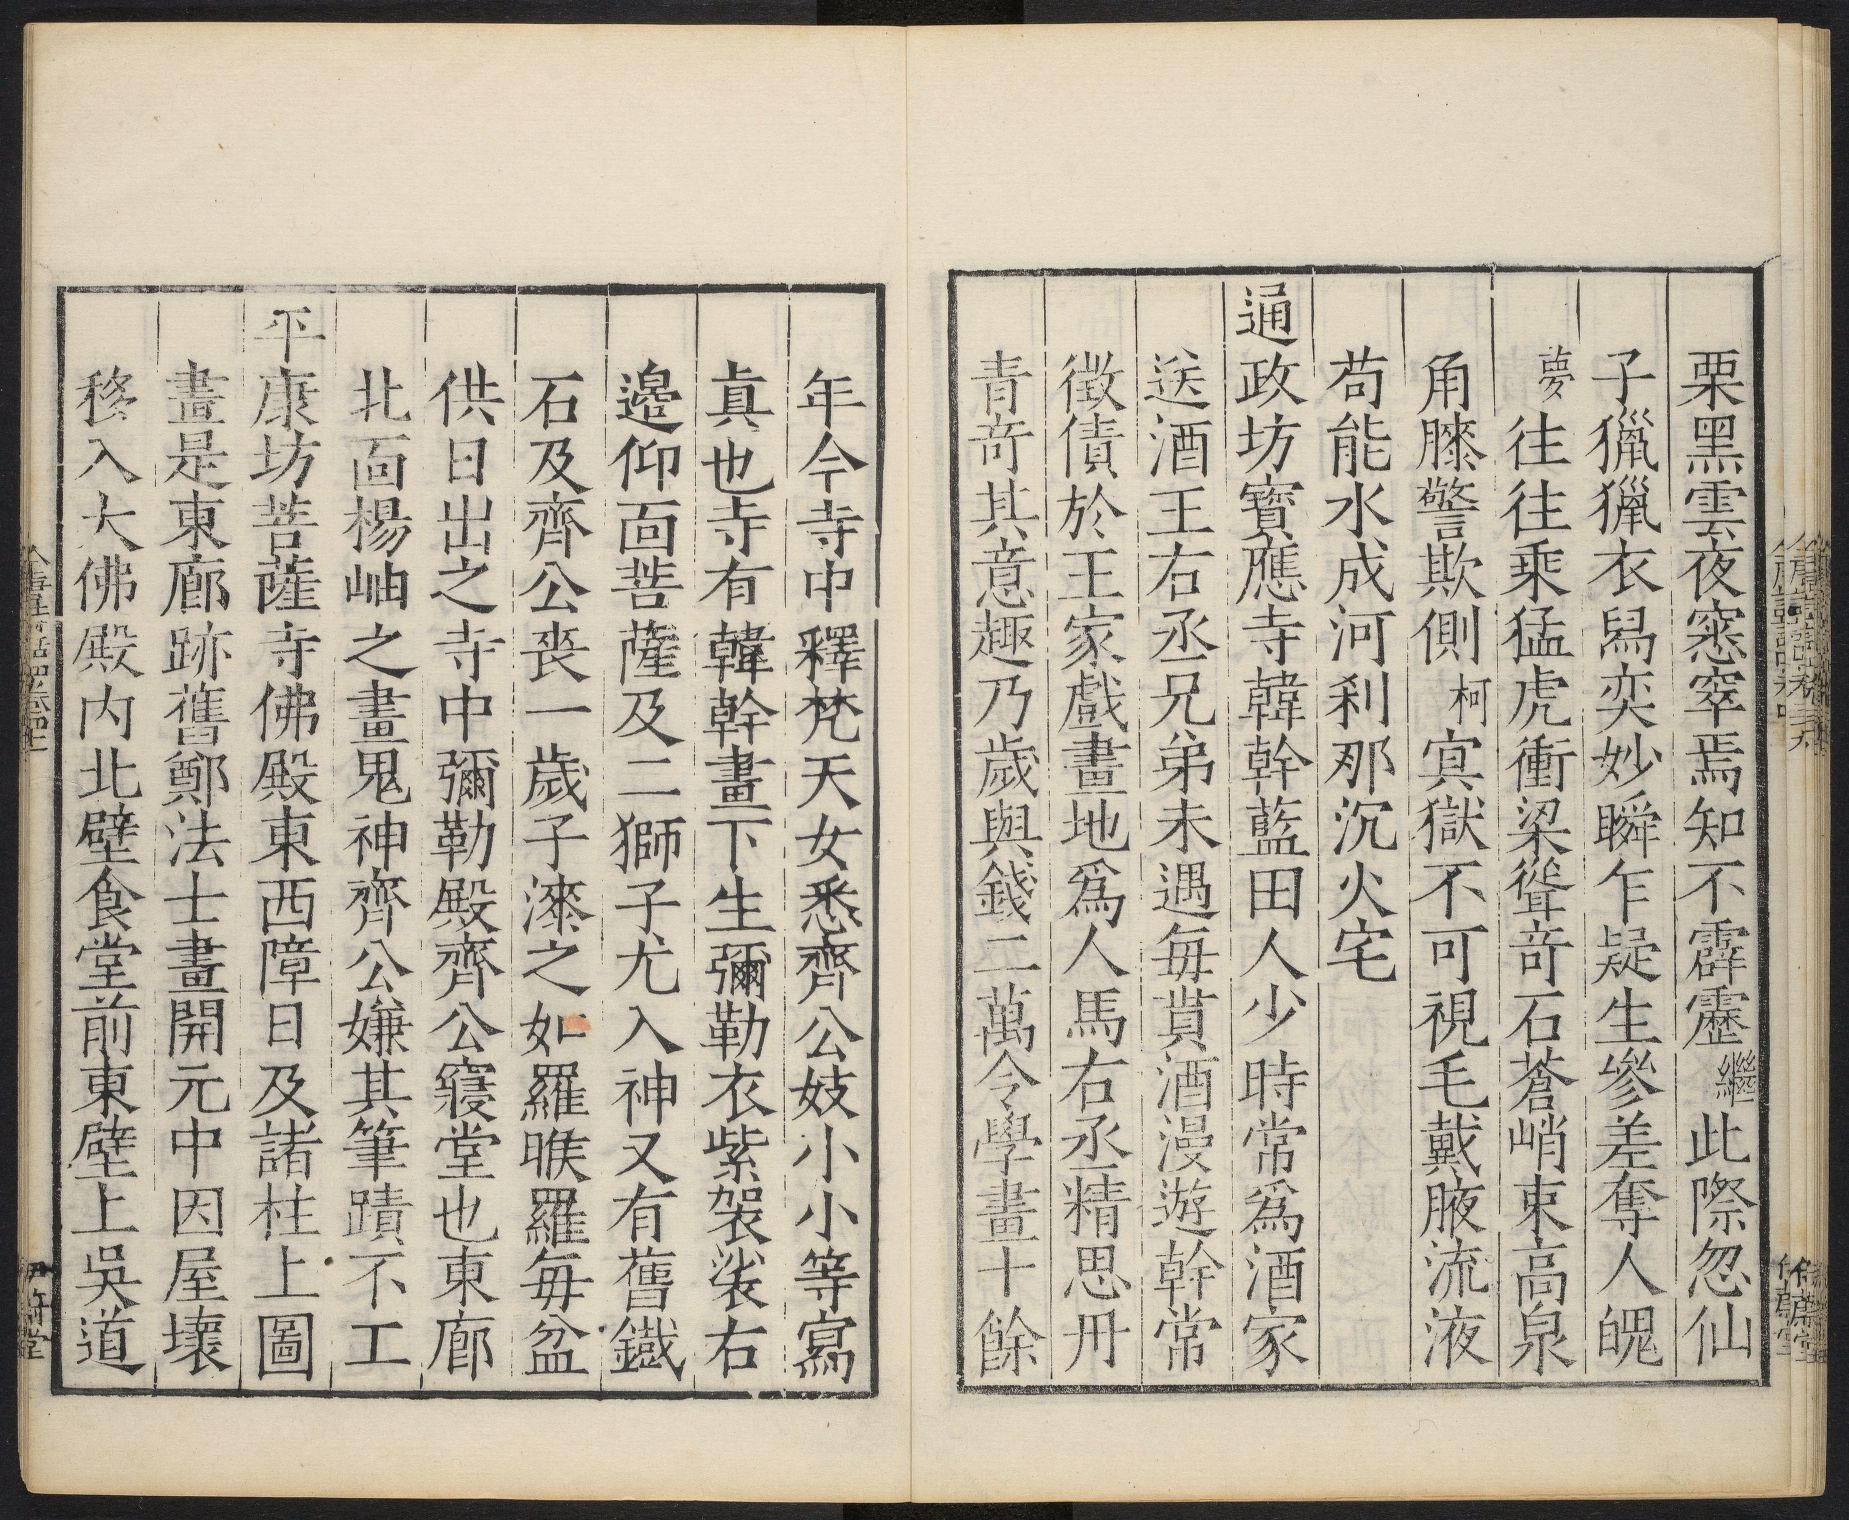 栗黑雲夜窸窣焉知不霹靂繼此際忽仙
子獵獵衣舄奕妙瞬乍疑生參差奪人魄
夢往往乘猛虎衝梁聳奇石蒼峭束高泉
角膝警欺側柯冥獄不可視毛戴腋流液
苟能水成河刹那沉火宅
通政坊寶應寺韓幹藍田人少時常爲酒家
送酒王右丞兄弟未遇每貰酒漫遊幹常
徵債於王家戲畫地爲人馬右丞精思丹
青奇其意趣乃歲與錢二萬令學畫十餘
年今寺中釋梵天女悉齊公妓小小等寫
真也寺有韓幹畫下生彌勒衣紫袈裟右
邊仰面菩薩及二獅子尤入神又有舊鐵
石及齊公喪一歲子漆之如羅睺羅每盆
供日出之寺中彌勒殿齊公寢堂也東廊
北面楊岫之畫鬼神齊公嫌其筆蹟不工
平康坊菩薩寺佛殿東西障日及諸柱上圖
畫是東廊跡舊鄭法士畫開元中因屋壞
移入大佛殿內北壁食堂前東壁上吳道